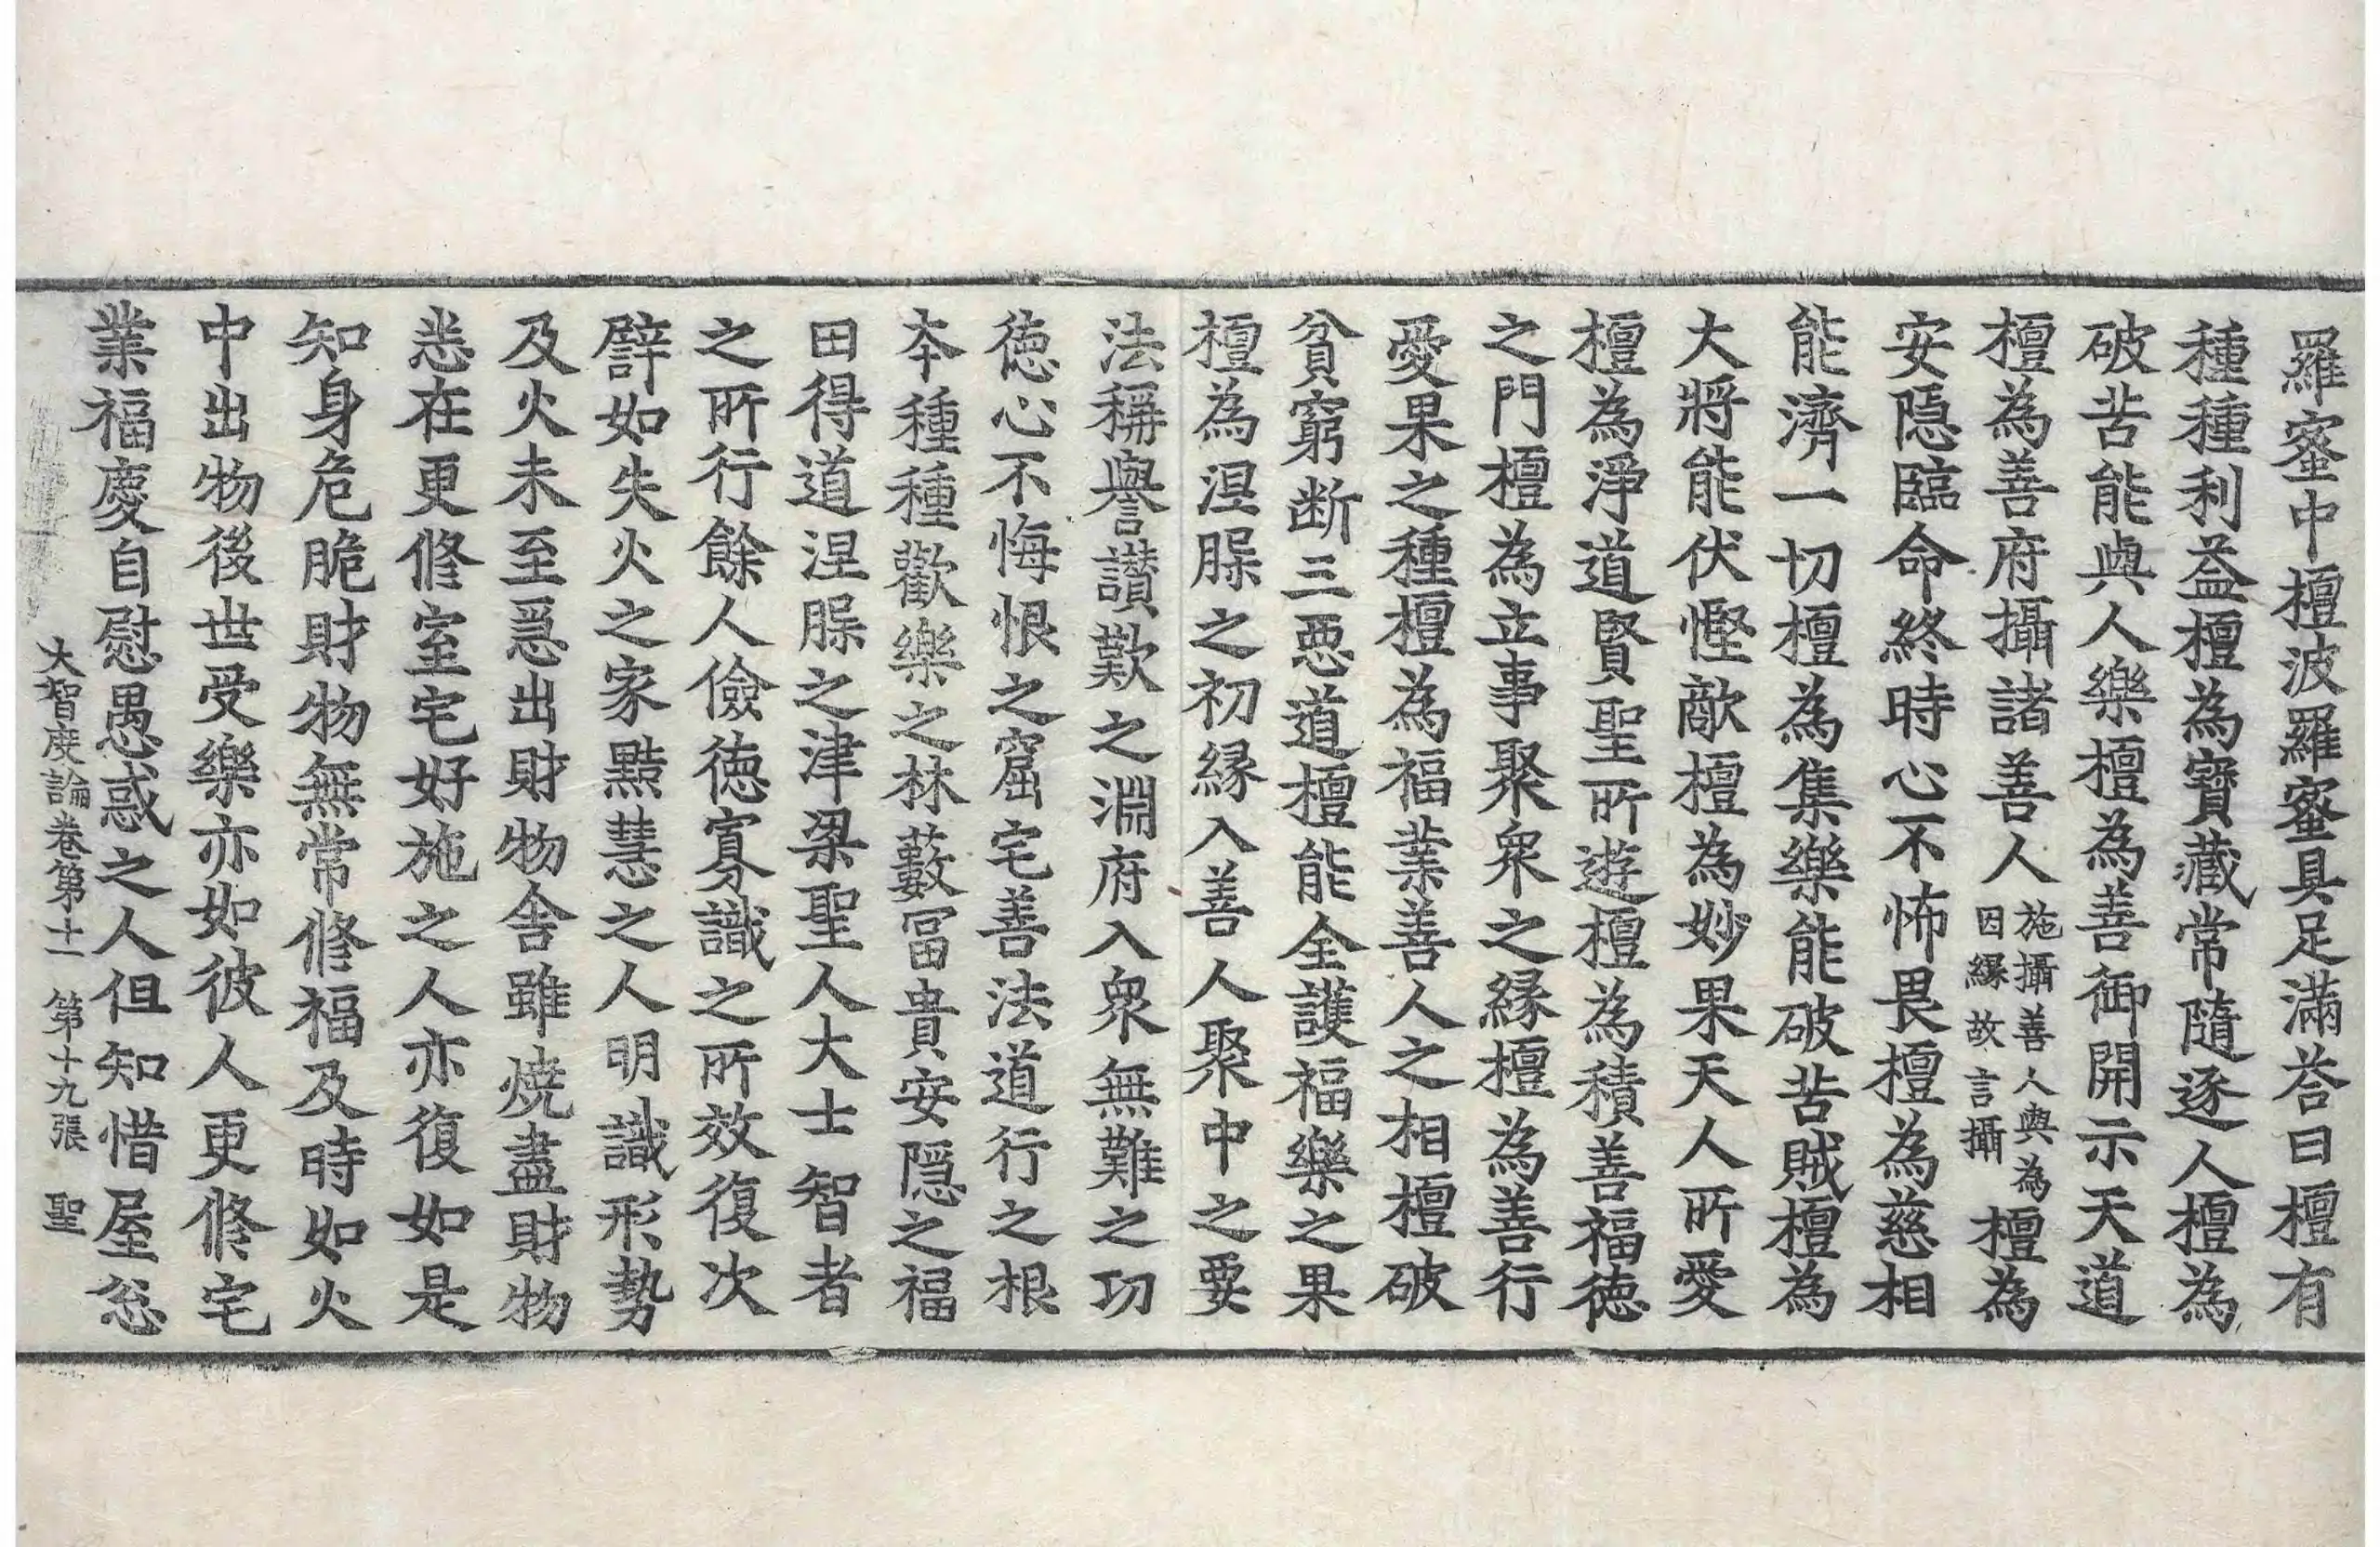 羅蜜中檀波羅蜜具足滿荅曰檀有
種種利益檀為寶藏常隨逐人檀為
破苦能與人樂檀為善御開示天道
檀為善府攝諸善人施攝善人與為因緣故言攝檀為
安隱臨命終時心不怖畏檀為慈相
能濟一切檀為集樂能破苦賊檀為
大將能伏慳敵檀為妙果天人所愛
檀為淨道賢聖所遊檀為積善福德
之門檀為立事聚衆之緣檀為善行
愛果之種檀為福業善人之相檀破
貧窮断三惡道檀能全護福樂之果
檀為涅槃之初縁入善人聚中之要
法稱譽讚歎之淵府入衆無難之功
徳心不悔恨之窟宅善法道行之根
本種種歡樂之林藪冨貴安隱之福
田得道涅槃之津梁聖人大士智者
之所行餘人儉徳寡識之所效復次
譬如失火之家黠慧之人明識形勢
及火未至急出財物舍雖燒盡財物
悉在更修室宅好施之人亦復如是
知身危脆財物無常修福及時如火
中出物後世受樂亦如彼人更修宅
業福慶自慰愚惑之人但知惜屋忩
大智度論卷第十一 第十九張 聖